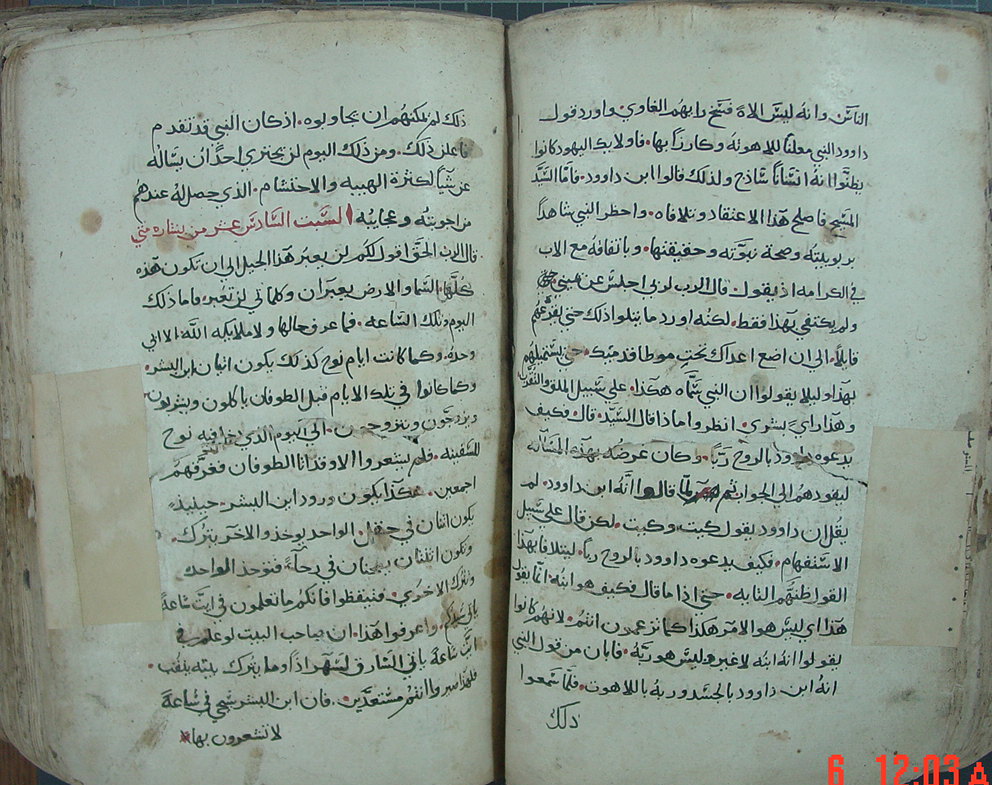 الناس وانه ليس الاه فسخ رايهم الغاوي واورد قول
داوود النبي معلنًا للاهوته وكارزًا بها، فاولايك اليهود كانوا
يظنوا انهُ انسانًا ساذج ولذلك قالوا ابن داوود. فامّا السيّد
المسيح فاصلح هذا الاعتقاد وتلافاه. واحظر النبي شاهداً
بربوبيّته وصحة نبوّته وحقيقتها، وباتفاقه مع الاب
في الكرامه اذ يقول. قال الرب لربي اجلس عن يميني حتى
ولم يكتفي بهذا فقط. لكنه اورد ما يتلوا ذلك حتى يفزعهم
قايلاً. الى ان اضع اعداك تحت موطا قدميك. حتى يستميلهم
بهذا وليلا يقولوا ان النبي سمّاه هكذا. على سبيل الملق
وهذا راي بشري. انظروا ماذا قال السيّد. قال فكيف
يدعوه داوود بالروح ربًّا. وكان غرضه بهذه المسأله
ليقودهم الى الجواب لمّا قالوا انّهُ ابن داوود. لم
يقل ان داوود يقول كيت وكيت. لكن قال على سبيل
الاستفهام. فكيف يدعوه داوود بالروح ربًّا. ليتلافا بهذا
القول ظنّهم التايه. حتى اذا ما قال فكيف هو ابنه. انّما يقول
هذا اي ليس هو الامر هكذا كما تزعمون انتمُ. لانهمُ كانوا
يقولوا انهُ ابنه لا غير وليس هو ربّهُ. فابان من قول النبي
انهُ ابن داوود بالجسد وربهُ باللاهوت. فلمّا سمعوا
ذلك
ذلك لم يمكنهُم ان يجاوبوه. اذ كان النبي قد تقدم
فاعلن ذلك. ومن ذلك اليوم لم يجتري احدًا ان يسأله
عن شيًا لكثرة الهيبه والاحتشام. الذي حصل لهُ عندهم
من اجوبته وعجايبُه السبت السادس عشر من بشارة متي
قال الرب الحق اقول لكم لن يعبر هذا الجيل الى ان تكون هذه
كلّها. السما والارض يعبران وكلماتي لن تعبر. فاما ذلك
اليوم وتلك الساعه. فما عرف حالها ولا ملايكه الله. الا ابي
وحده. وكما كانت ايام نوح كذلك يكون اتيان ابن البشر.
وكما كانوا في تلك الايام قبل الطوفان ياكلون ويشربون
ويزدجون ويتزوجون. الى اليوم الذي دخل فيه نوح
للسفينه. فلم يشعروا الا وقد اتا الطوفان فغرقهم
اجمعين. هكذا يكون ورود ابن البشر. حينيذٍ
يكون اثنان في حقل. الواحد يوخذ والاخر يترك.
وتكون اثنتان يطحنان في رحاةً فتوخذ الواحده
وتترك الاخرى. فتيقظوا فانكم ما تعلمون في ايّت ساعةً
ياتي سيدكم. واعرفوا هذا. ان صاحب البيت لو علم في
ايّت ساعةً ياتي السارق لسهر اذًا وما يترك بيته ينقب.
فلهذا سيروا انتمُ مستعدّين. فان ابن البشر يجي في ساعةً
لا تشعرون بها
6 12:03